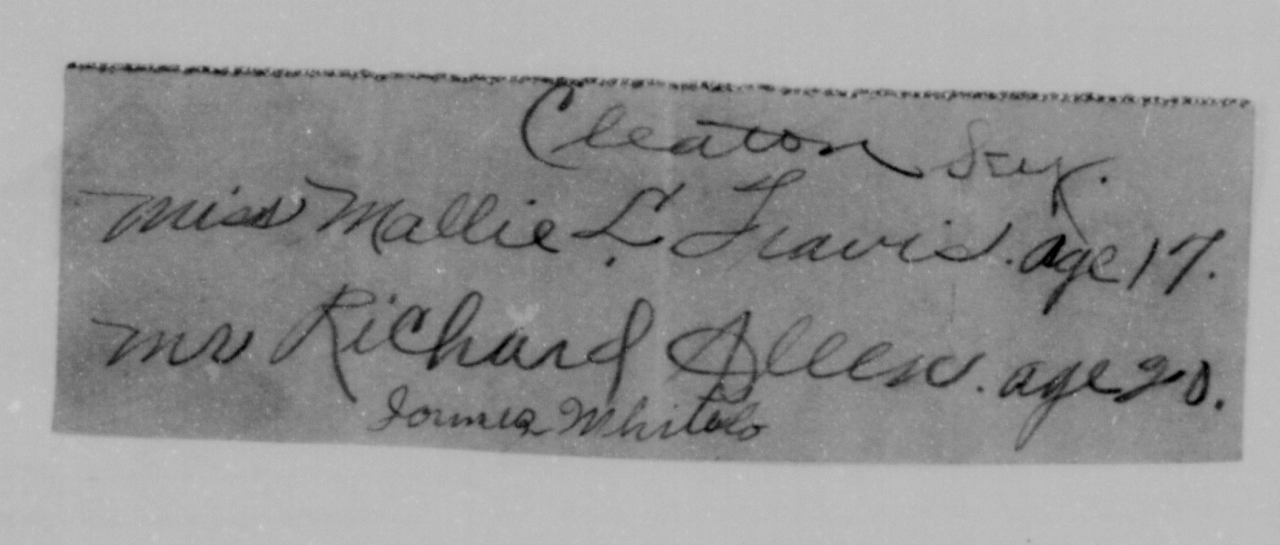 Cleaton Ky.
Miss Mallie L. Travis. age 17.
Mr Richard Allen. age 20.